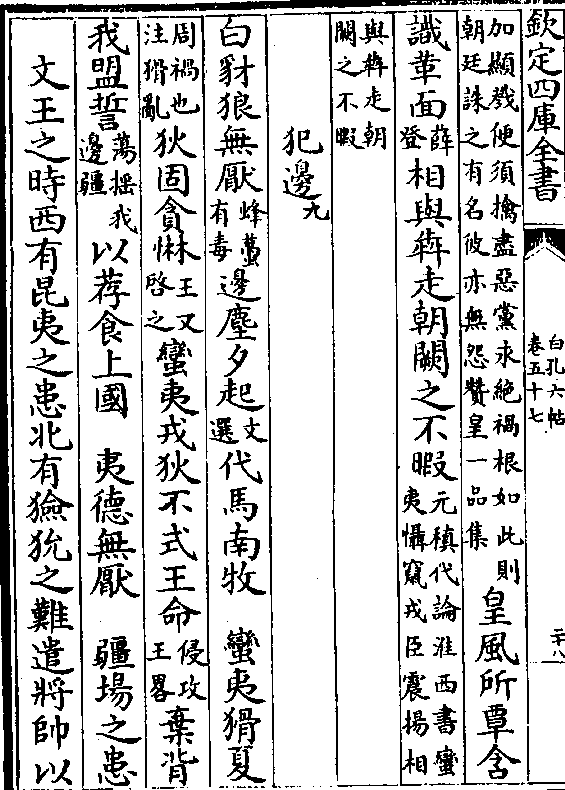 欽定四庫全書
白孔六帖
卷五十七
二十八
加顯戮便須擒盡惡黨永絕禍根如此則
朝廷誅之有名彼亦無怨贊皇一品集
皇風所覃含
識革面薛登相與犇走朝闕之不暇
元稹代論淮西書蠻
夷懾竄戎臣震揚相
與犇走朝
闕之不暇
犯邊九
白豺狼無厭蜂蠆有毒邊塵夕起文選代馬南牧　蠻夷猾夏
周禍也注猾亂狄固貪惏王又啓之蠻夷戎狄不式王命侵攻王畧棄背
我盟誓蕩揺我邊疆以荐食上國　夷德無厭　疆場之患
文王之時西有昆夷之患北有獫狁之難遣將帥以